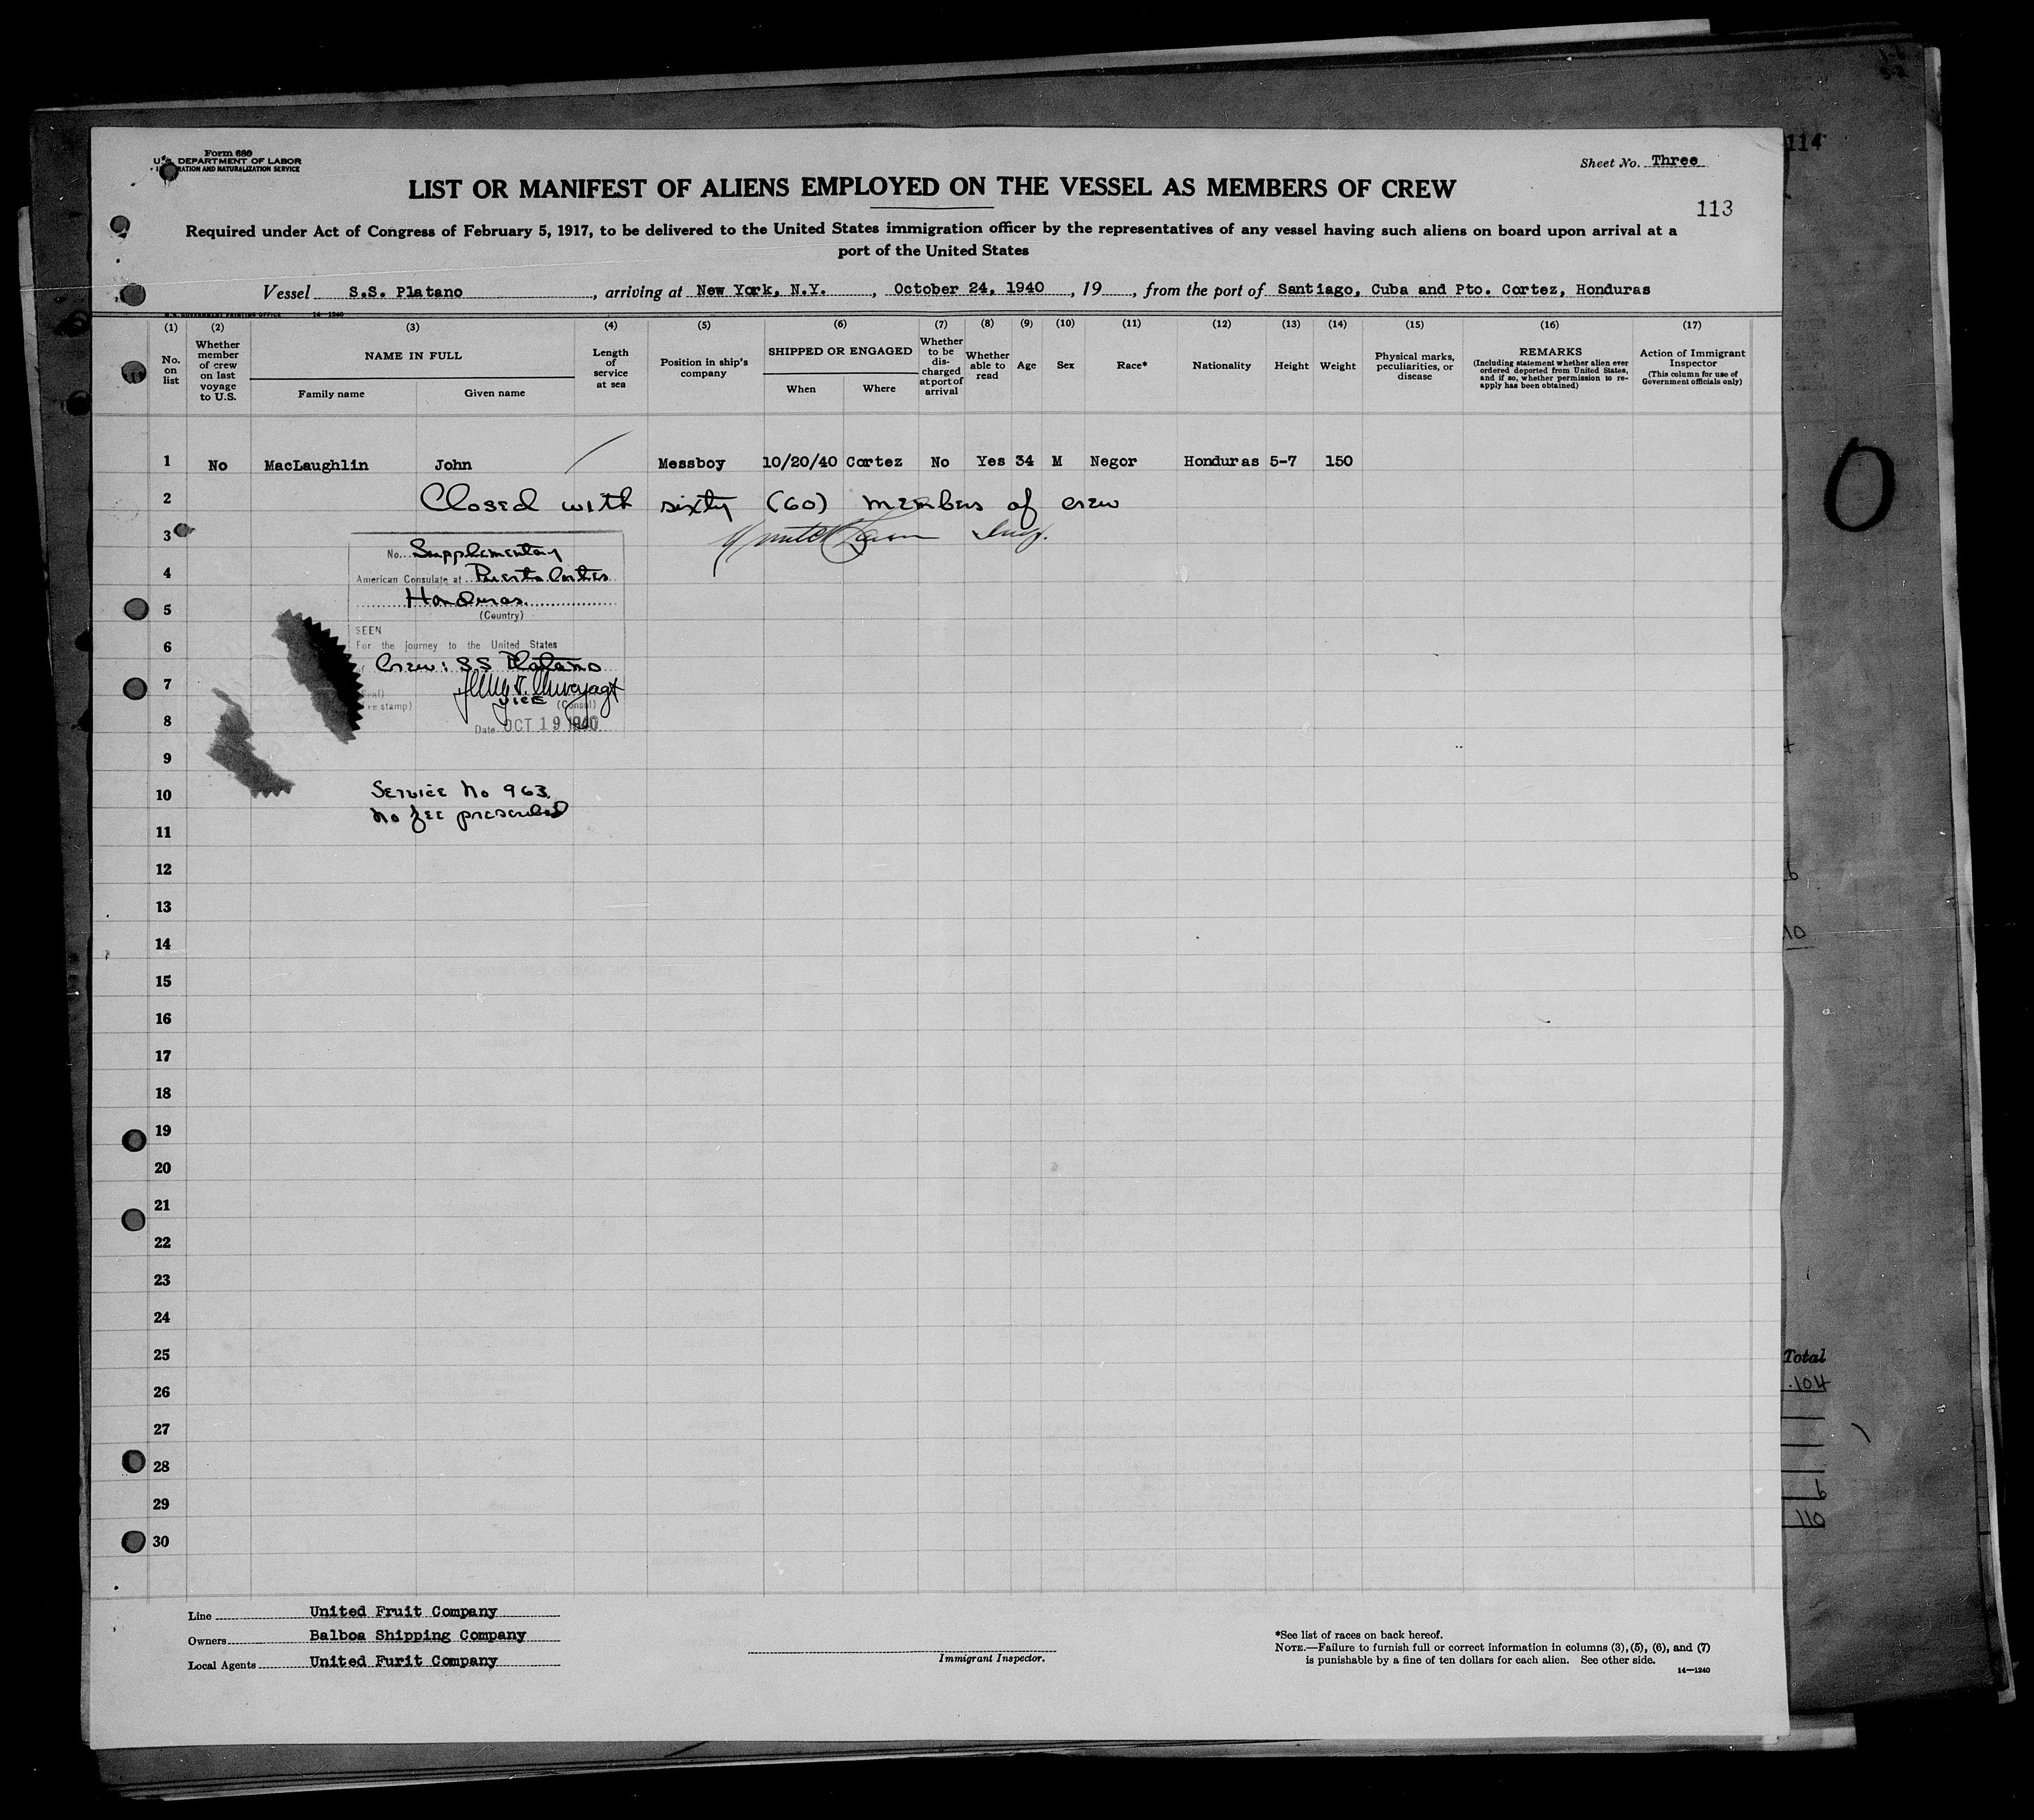 Form 680
U.S. DEPARTMENT OF LABOR
RATION AND NATURALIZATION SERVICE
Sheet No. Three
LIST OR MANIFEST OF ALIENS EMPLOYED ON THE VESSEL AS MEMBERS OF CREW
113
Required under Act of Congress of February 5, 1917, to be delivered to the United States immigration officer by the representatives of any vessel having such aliens on board upon arrival at a
port of the United States
Vessel S.S. Platano, arriving at New York, N.Y., October 24, 1940, 19, from the port of Santiago, Cuba and Pto. Cortez, Honduras
U.S. GOVERNMENT PRINTING OFFICE 14-1240
(1) (2) (3) (4) (5) (6) (7) (8) (9) (10) (11) (12) (13) (14) (15) (16) (17)
No. on list
Whether member of crew on last voyage to U.S.
NAME IN FULL
Family name
Given name
Length of service at sea
Position in ship's company
SHIPPED OR ENGAGED
When
Where
Whether to be discharged at port of arrival
Whether able to read
Age
Sex
Race*
Nationality
Height
Weight
Physical marks, peculiarities, or disease
REMARKS
(Including statement whether alien ever ordered deported from United States, and if so, whether permission to reapply has been obtained)
Action of Immigrant Inspector
(This column for use of Government officials only)
1 No MacLaughlin John Messboy 10/20/40 Cortez No Yes 34 M Negor Honduras 5-7 150
2 Closed with sixty (60) members of crew
3 Insp.
No. Supplementary
4 American Consulate at Puerto Cortes
Honduras
5 (Country)
SEEN
6 For the journey to the United States
Crew: SS Platano
7
VICE (Consul)
ee stamp)
8 Date OCT 19 1940
9
10 Service No 963.
No fee prescribed
11
12
13
14
15
16
17
18
19
20
21
22
23
24
25
26
27
28
29
30
Line United Fruit Company
Owners Balboa Shipping Company
Local Agents United Furit Company
Immigrant Inspector.
*See list of races on back hereof.
NOTE.—Failure to furnish full or correct information in columns (3), (5), (6), and (7)
is punishable by a fine of ten dollars for each alien. See other side.
14—1240
114
0
6
10
Total
104
6
110